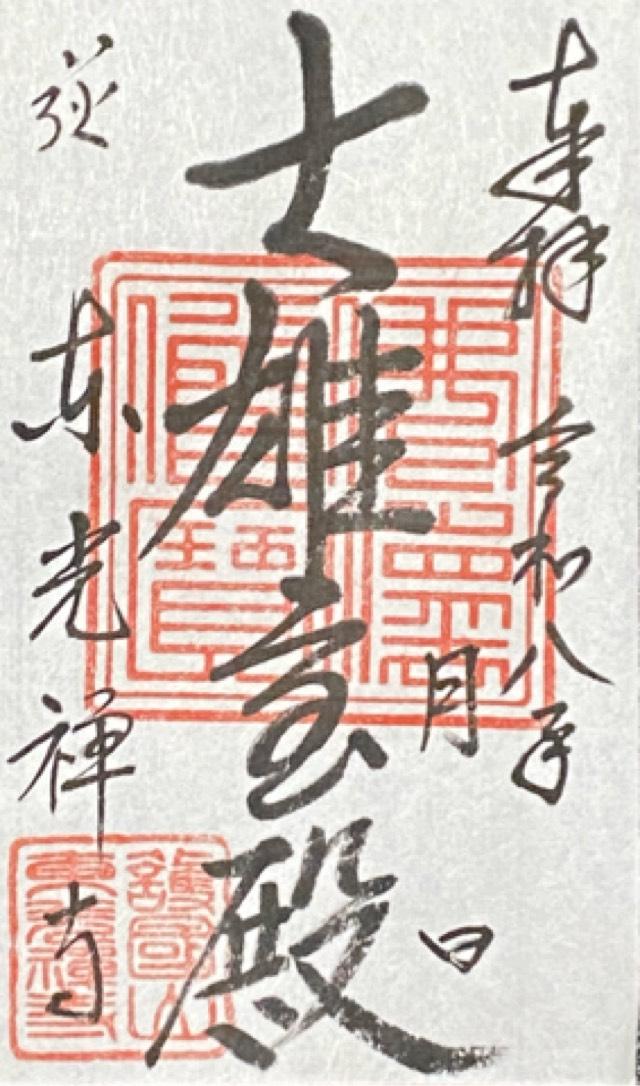 奉拝 令和八年 月 日
大雄宝殿
萩 東光禅寺
護國山